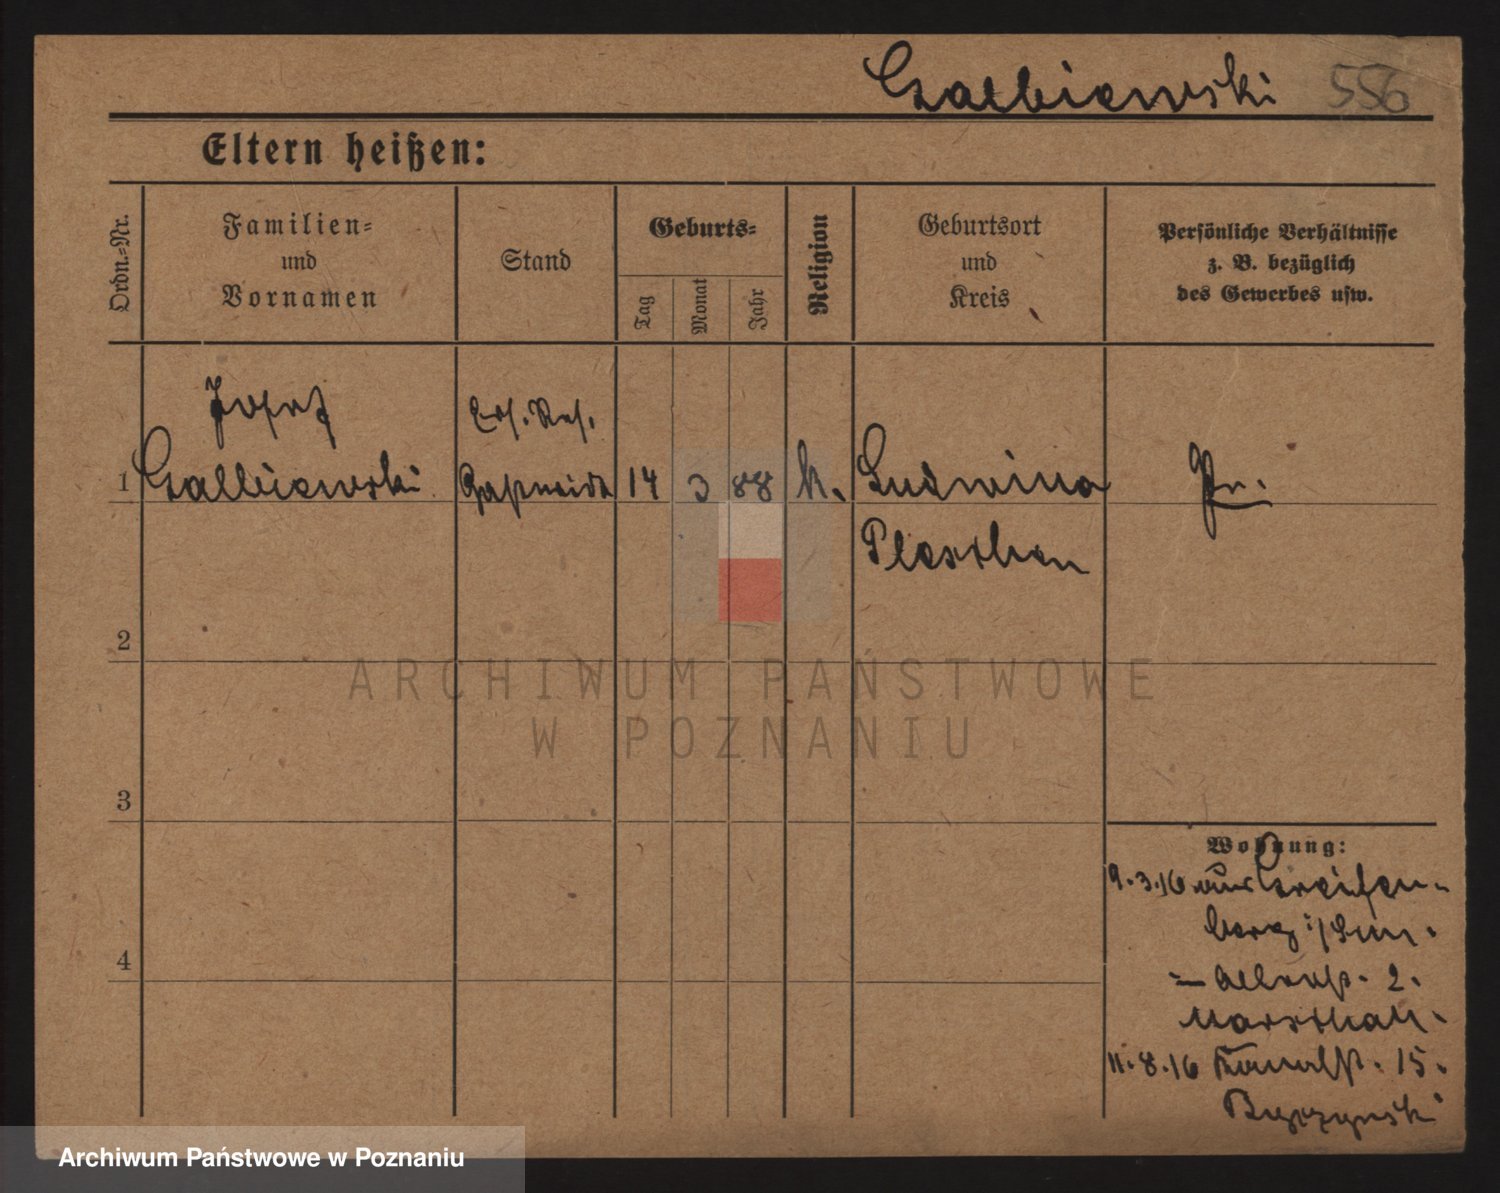 Galbiewski 556
Eltern heißen:
Ordn.-Nr.
Familien-
und
Vornamen
Stand
Geburts-
Tag
Monat
Jahr
Religion
Geburtsort
und
Kreis
Persönliche Verhältnisse
z. B. bezüglich
des Gewerbes usw.
Josef
Ers. Res.
1 Galbiewski 14 3 88 k. Ludwina Pr.
Pleschen
2
3
4
Wohnung:
9.3.16 aus Greifen-
berg i/Pom.
2.
Marschall.
11.8.16 Kanalstr. 15.
ARCHIWUM PAŃSTWOWE
W POZNANIU
Archiwum Państwowe w Poznaniu